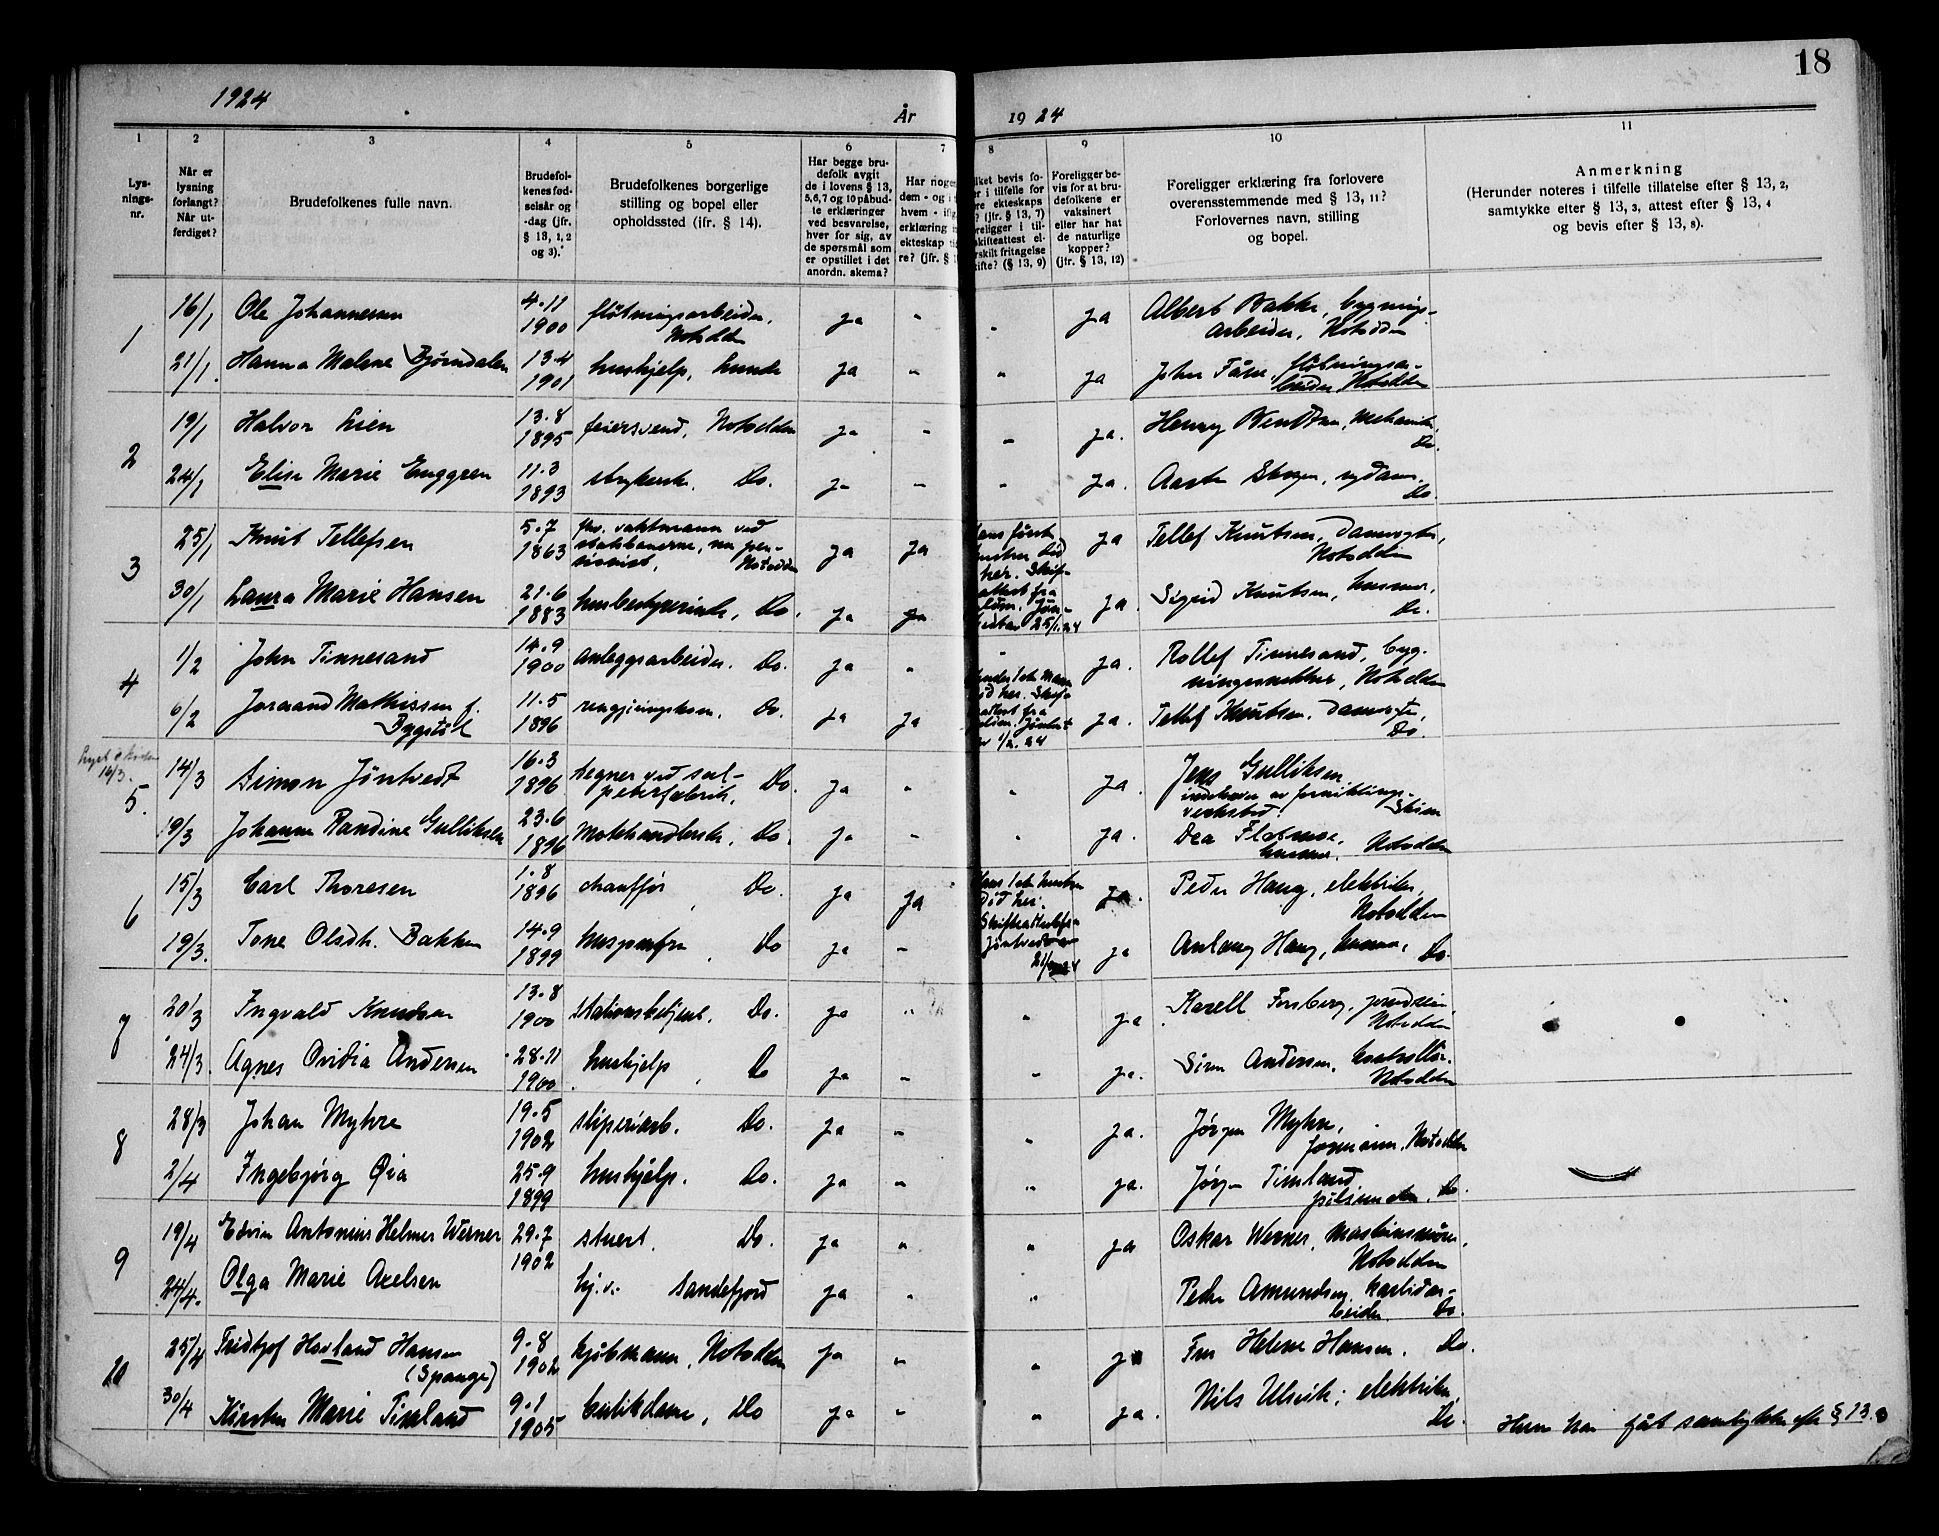 18
1924
År
1924
1 2 3 4 5 6 7 8 9 10 11
Lys-
nings-
nr.
Når er
lysning
forlangt?
Når ut-
ferdiget?
Brudefolkenes fulle navn.
Brudefol-
kenes fød-
selsår og
-dag (jfr.
§ 13, 1, 2
og 3).
Brudefolkenes borgerlige
stilling og bopel eller
opholdssted (jfr. § 14).
Har begge bru-
defolk avgit
de i lovens § 13,
5, 6, 7 og 10 påbud-
te erklæringer
ved besvarelse,
hver for sig, av
de spørsmål som
er opstillet i det
anordn. skema?
Har noge
dem - og i
hvem - ifø
erklæring
ekteskap ti
re? (jfr. § 1
lket bevis fo-
r i tilfelle for
re ekteskaps
? (jfr. § 13, 7)
religger i til-
skifteattest el-
rskilt fritagelse
ifte? (§ 13, 9)
Foreligger be-
vis for at bru-
defolkene er
vaksinert
eller har hat
de naturlige
kopper?
(jfr. § 13, 12)
Foreligger erklæring fra forlovere
overensstemmende med § 13, 11?
Forlovernes navn, stilling
og bopel.
Anmerkning
(Herunder noteres i tilfelle tillatelse efter § 13, 2,
samtykke efter § 13, 3, attest efter § 13, 4
og bevis efter § 13, 8).
1 16/1 Ole Johannesen 4.11 1900 fløtningsarbeider, Notodden ja " " ja Albert Bakke, bygnings-
arbeider, Notodden
21/1. Hanna Malene Bjørndalen 13.4 1901 hushjelp, ja " " ja John fløtningsar-
beider Notodden
2 19/1 Halvor Lien 13.8 1895 feiersvend, Notodden ja " " ja. Henry mekaniker,
Do.
24/1 Elise Marie Enggren 11.3 1893 strykerske Do. ja " " ja. Aaste Skogen, sydame
Do.
3 25/1 Knut Tellefsen 5.7 1863 fhv. vaktmann ved
statsbanerne, nu pen-
sionist, Notodden ja ja Hans første
hustru død
her. Skif-
attest fra
25/1.24 ja Tellef Knutsen, Damvogter,
Notodden
30/1 Laura Marie Hansen 21.6 1883 husbestyrerinde, Do. ja ja ja. Sigrid Knutsen, husmor,
Do.
4 1/2 John Tinnesand 14.9 1900 anleggsarbeider. Do. ja " " ja. Rollef Tinnesand, byg-
ningssnekker, Notodden
6/2 Joraand Mathissen f.
Bygstøl 11.5 1896 rengjøringskone, Do. ja ja
her. Skif-
attest fra
1/2.24 ja. Tellef Knutsen, Damvogter,
Do.
lyst i
16/3.
5. 14/3 Simon Jøntvedt 16.3 1896 tegner ved sal-
peterfabrik, Do. ja " " ja. Jens Gulliksen
indehaver av forniklings-
verksted, Skien
19/3 Johanne Randine Gulliksen 23.6 1896 Motehandlerske, Do. ja " " ja. Dea Flatmoe,
husmor. Notodden
6 15/3 Carl Thoresen 1.8 1896 chauffør Do. ja ja Hans 1ste hustru
død her.
Skifteattest
ja. Peder Haug, elektriker,
Notodden
19/3. Tone Olsdtr. Bakken 14.9 1899 Do ja " ja Anlaug Haug, husmor, Do.
7 20/3 Ingvald Knudsen 13.8 1900 stationsbetjent, Do. ja " " ja Karell Forsberg,
Notodden
24/3. Agnes Ovidia Andersen 28.11 1900 hushjelp, Do ja " " ja. Andersen, kontrollør.
Notodden
8 28/3 Johan Myhre 19.5 1902 sliperiarb. Do. ja " " ja. Jørgen Myhre,
formann, Notodden
2/4 Ingebjørg Øia 25.9 1899 hushjelp. Do. ja " " ja. Jørgen Timland
Do.
9 19/4 Edvin Antonius Helmer Werner 29.7 1902 stuert. Do. ja " " ja Oskar Werner,
Notodden
24/4. Olga Marie Axelsen hj.v. Sandefjord ja " " Peder Amundsen, karbidar-
beider. Do.
10 25/4 Fridtjof Havland Hansen
(Spange) 9.8 1902 kjøbmann, Notodden ja " " ja Fru Helene Hansen. Do.
30/4 Kirsten Marie Timland 9.1 1905 butikdame, Do ja " " ja. Nils Ulsvik, elektriker,
Do. Hun har fåt samtykke eft § 13.3